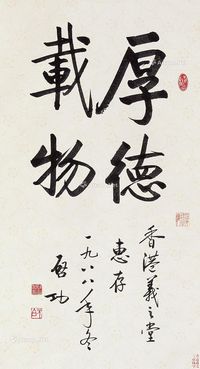 厚德
載物
香港義之堂
惠存
一九八八年冬
啓功